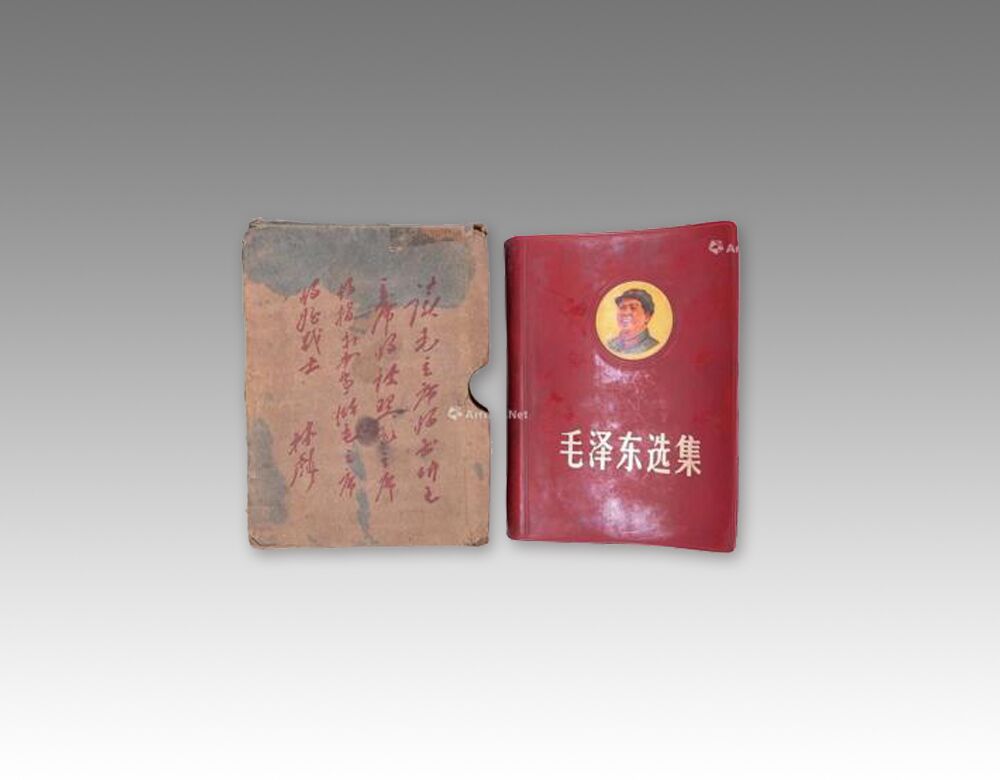 读毛主席的书听毛
主席的话照毛主席
的指示办事做毛主席
的好战士
林彪
毛泽东选集